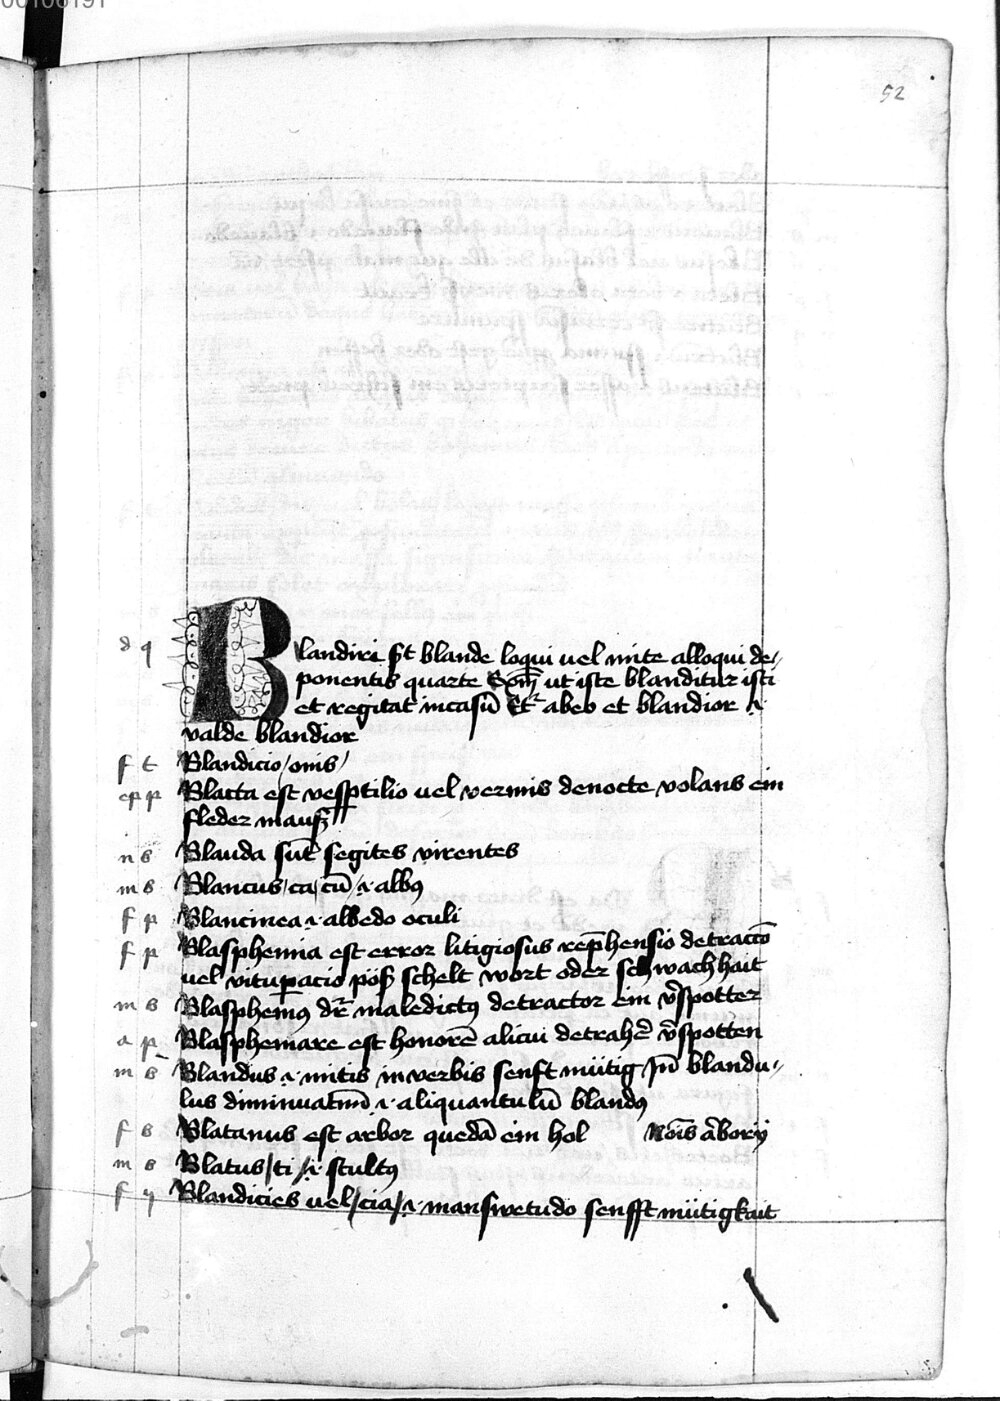 52
d q Blandiri s̄t blande loqui uel mite alloqui de⸗
ponentis quarte Rom̄ ut iste blanditur isti
et regitat incasū abeo et blandior .i.
valde blandior
f t Blandicio / onis /
p Blacta est vesptilio uel vermis denocte volans ein
fleder mauß
n s Blauda sūt segites virentes
m s Blancus / ca / cū / .i. albꝰ
f p Blancinea .i. albedo oculi
f p Blasphemia est error litigiosus rep̄hensio detracc̄o
uel vitup̱acio pöß schelt wort oder schwachhait
m s Blasphemꝰ dr̄ maledictꝰ detractor ein v̄spotter
a p Blasphemare est honorē alicui detrahē v̄spotten
m s Blandus .i. mitis in verbis senft müitig Jn̄ blandu⸗
lus diminuatiūū .i. aliquantulū blandꝰ
f s Blatanus est arbor quedā ein hol
m s Blatus / ti / .i. stultꝰ
f q Blandicies uel / cia / .i. manswetudo senfft müitigkait